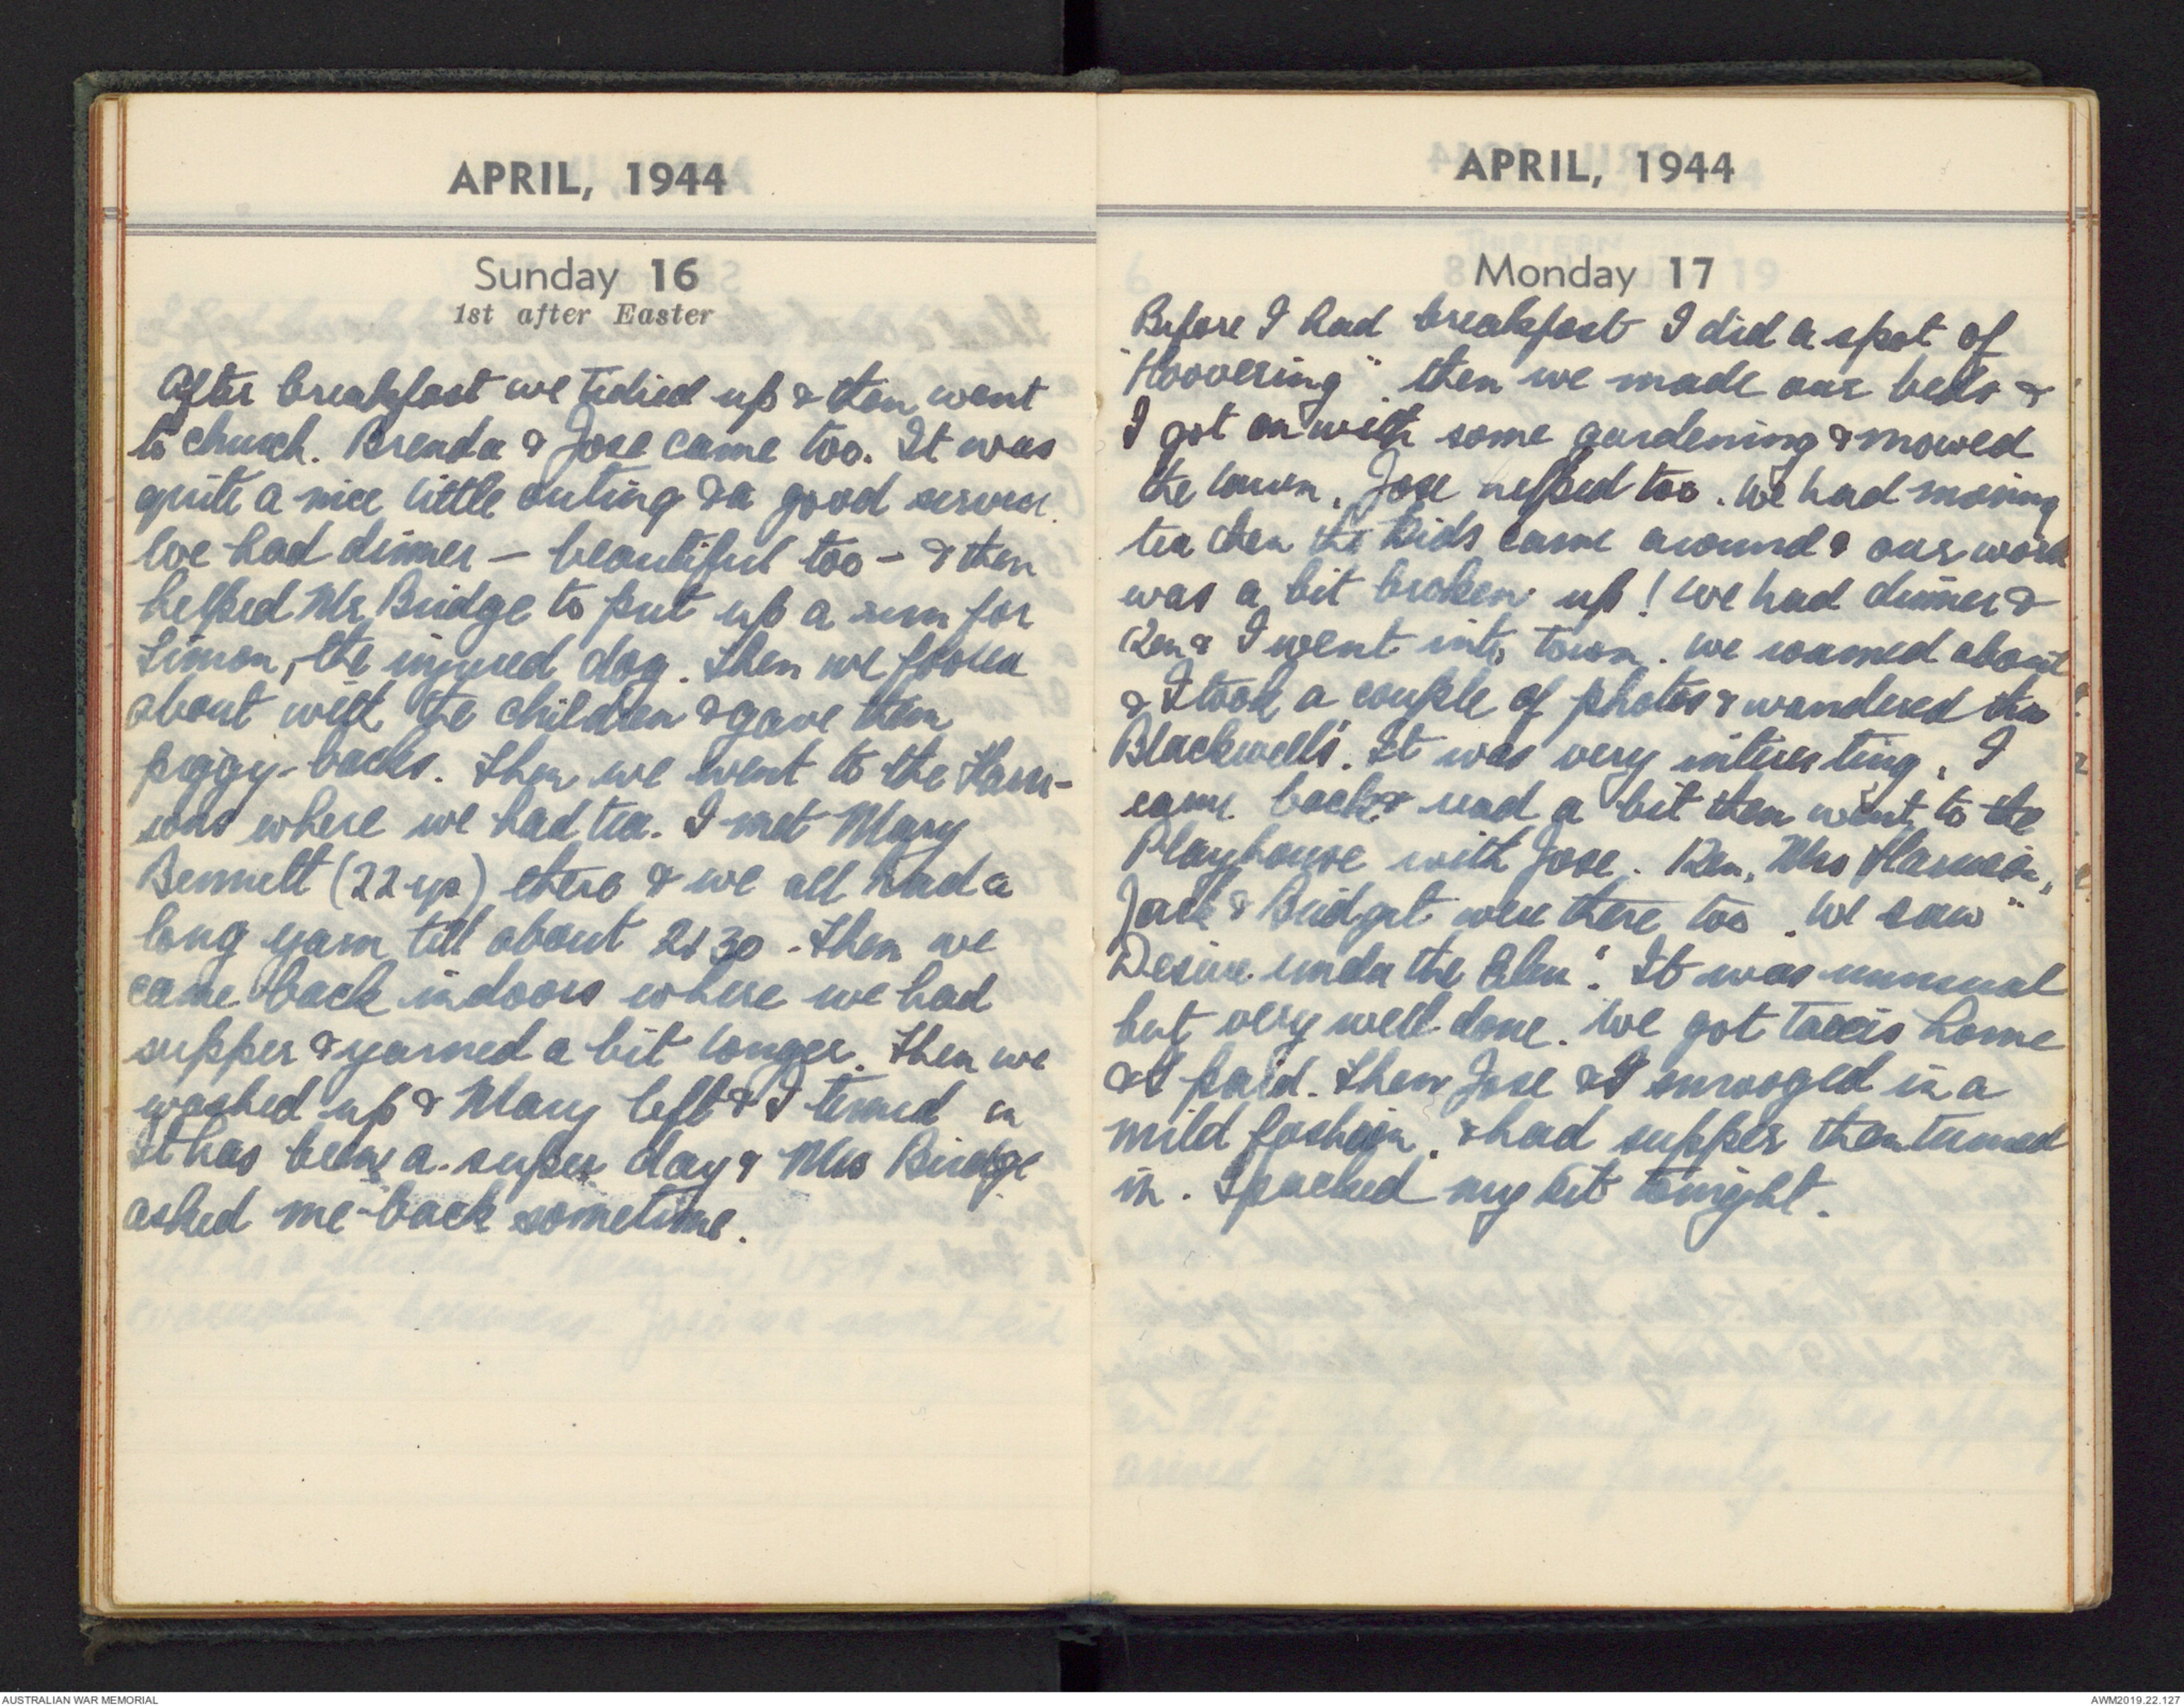 APRIL, 1944
Sunday 16
1st after Easter
After breakfast we tidied up & then went
to church. Brenda & Jose came too. It was
quite a nice little outing & a good service.
We had dinner – beautiful too – & then
helped Mr Bridge to put up a run for
Simon, the injured dog. Then we fooled
about with the children & gave them
piggy-backs. Then we went to the Harri-
sons where we had tea. I met Mary
Bennett (22 yrs) there & we all had a
long yarn till about 2130. Then we
came back indoors where we had
supper & yarned a bit longer. Then we
washed up & Mary left & I turned in
It has been a super day & Mrs Bridge
asked me back sometime.
APRIL, 1944
Monday 17
Before I had breakfast I did a spot of
"Hoovering" then we made our beds &
I got on with some gardening & mowed
the lawn. Jose helped too. We had morning
tea then the kids came around & our work
was a bit broken up! We had dinner &
Ken & I went into town. We roamed about
& I took a couple of photos & wandered thru
Blackwells'. It was very interesting. I
came back & read a bit then went to the
Playhouse with Jose. Ken, Mrs Harrison,
Jack & Bridget were there too. We saw "
Desire under the Elms". It was unusual
but very well done. We got taxis home
& I paid. Then Jose & I snogged in a
mild fashion, & had supper then turned
in. I packed my kit tonight.
AUSTRALIAN WAR MEMORIAL
AWM2019.22.127